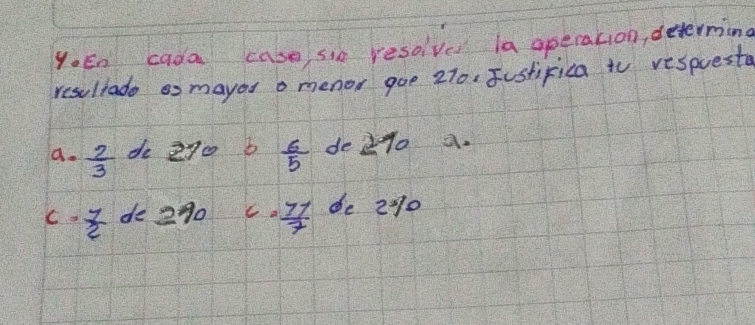 4. En cada caso, sin resolver la operacion, determina
resultado es mayor o menor que 210. Justifica tu respuesta
a. 2/3 de 270 b 6/5 de 270 a.
c. 7/2 de 270 c. 11/7 de 270